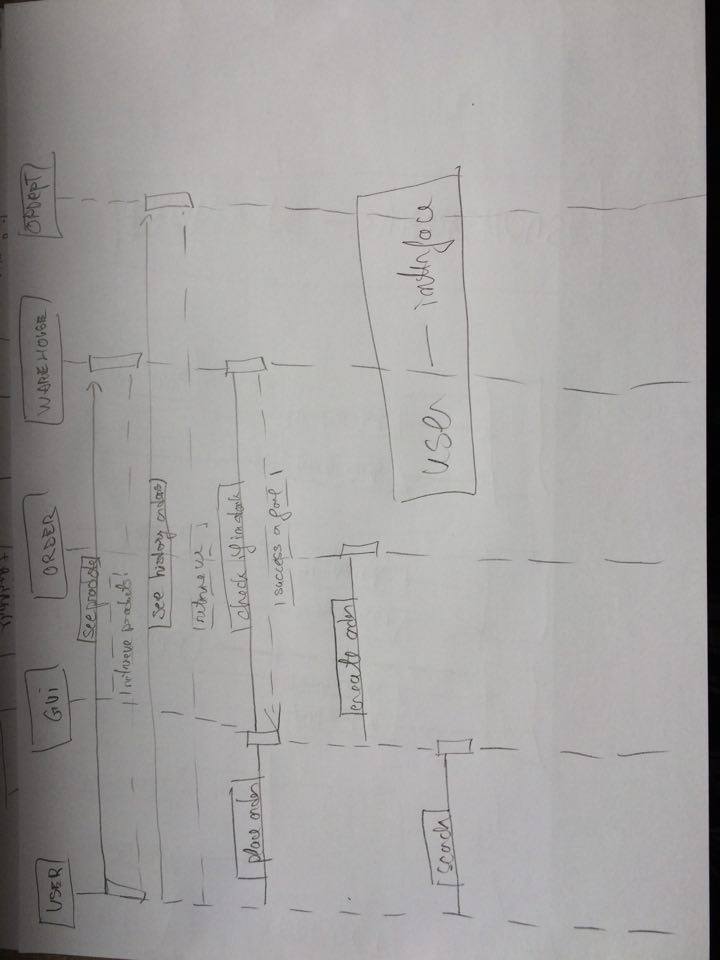 USER
GUI
ORDER
WAREHOUSE
ORDEPT
see products
retrieve products
see history orders
retrieve
place order
check if in stock
success or fail
create order
search
user - interface